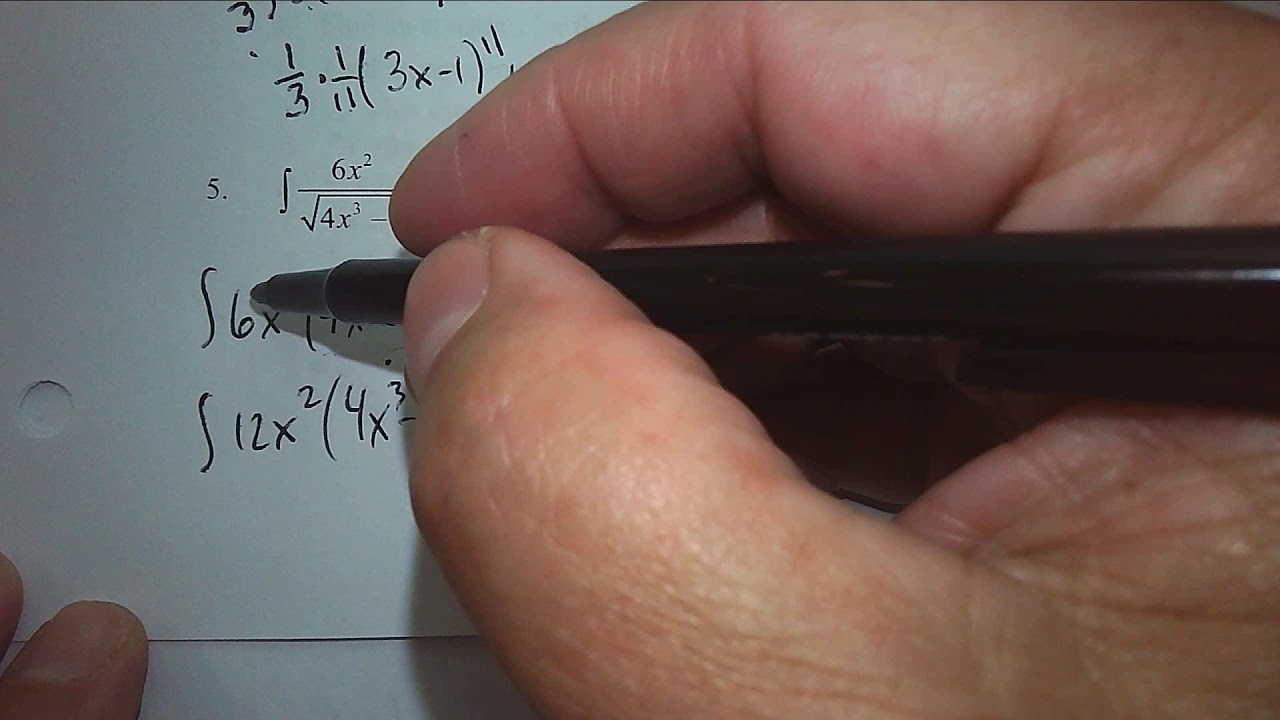 3
1/3 · 1/11 (3x-1)^11
5. ∫ 6x²/√4x³ –
∫ 6x (4x
∫ 12x²(4x³ -